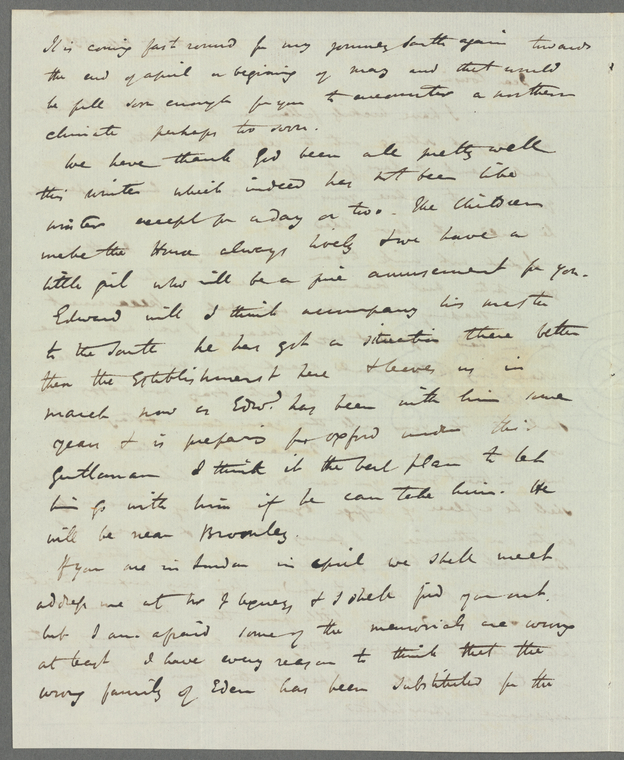 It is coming fast round for my journey South again towards
the end of april or begining of may and that would
be full soon enough for you to encounter a northern
climate perhaps too soon.
We have thank God been all pretty well
this winter which indeed has not been like
winter except for a day or two. The Children
make the House always lively & we have a
little girl who will be a fine amusement for you.
Edward will I think accompany his master
to the South he has got a situation there better
then the Establishment here & leaves us in
march now as Edwd. has been with him some
years & is preparing for oxford under this
Gentleman I think it the best plan to let
him go with him if he can take him. He
will be near Bromley.
If you are in London in april we shall meet
address me at & I shall find you out.
but I am afraid some of the memorials are wrong
at least I have every reason to think that the
wrong family of Eden has been substituted for the